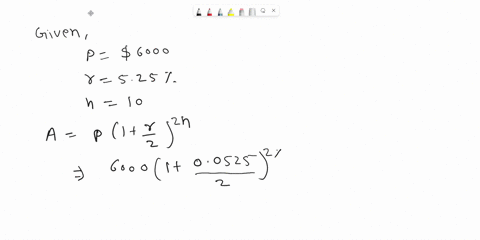 Given,
P = $ 6000
r = 5.25 %.
n = 10
A = P (1 + r/2)^2n
⇒ 6000 (1 + 0.0525/2)^2%